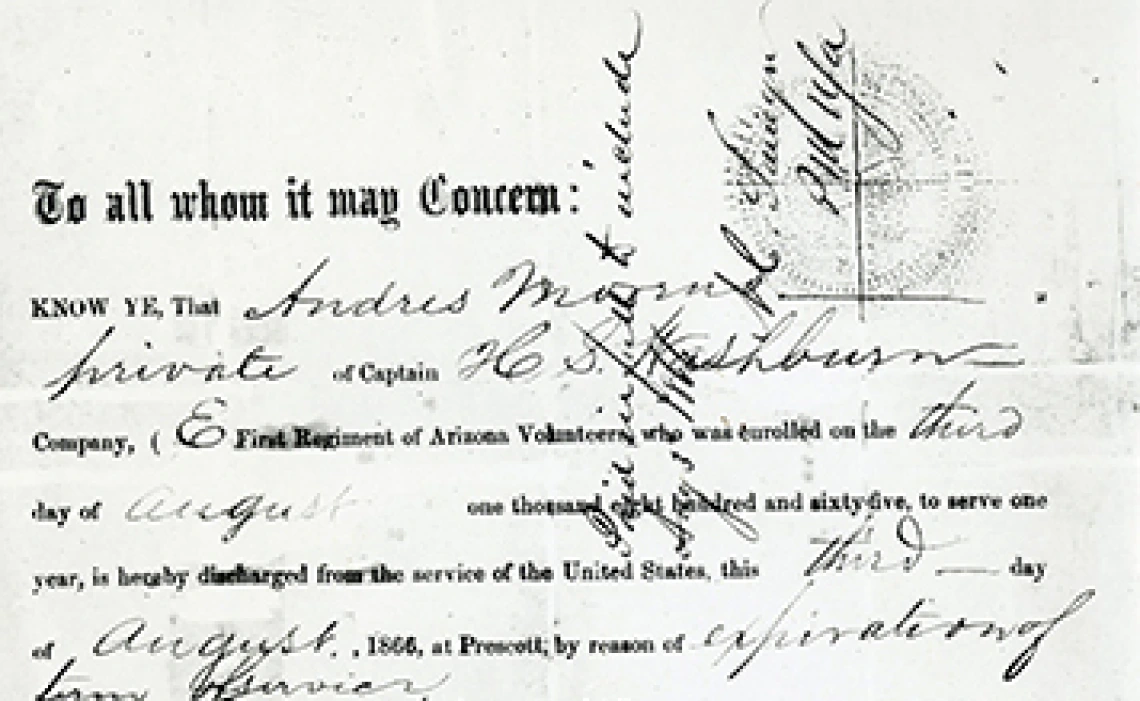 To all whom it may Concern:
KNOW YE, That Andres
private of Captain H S. Washburn
Company, ( E First Regiment of Arizona Volunteers, who was enrolled on the third
day of August one thousand eight hundred and sixty-five, to serve one
year, is hereby discharged from the service of the United States, this third day
of August, 1866, at Prescott, by reason of expiration of
term of service,
Paid in full to include